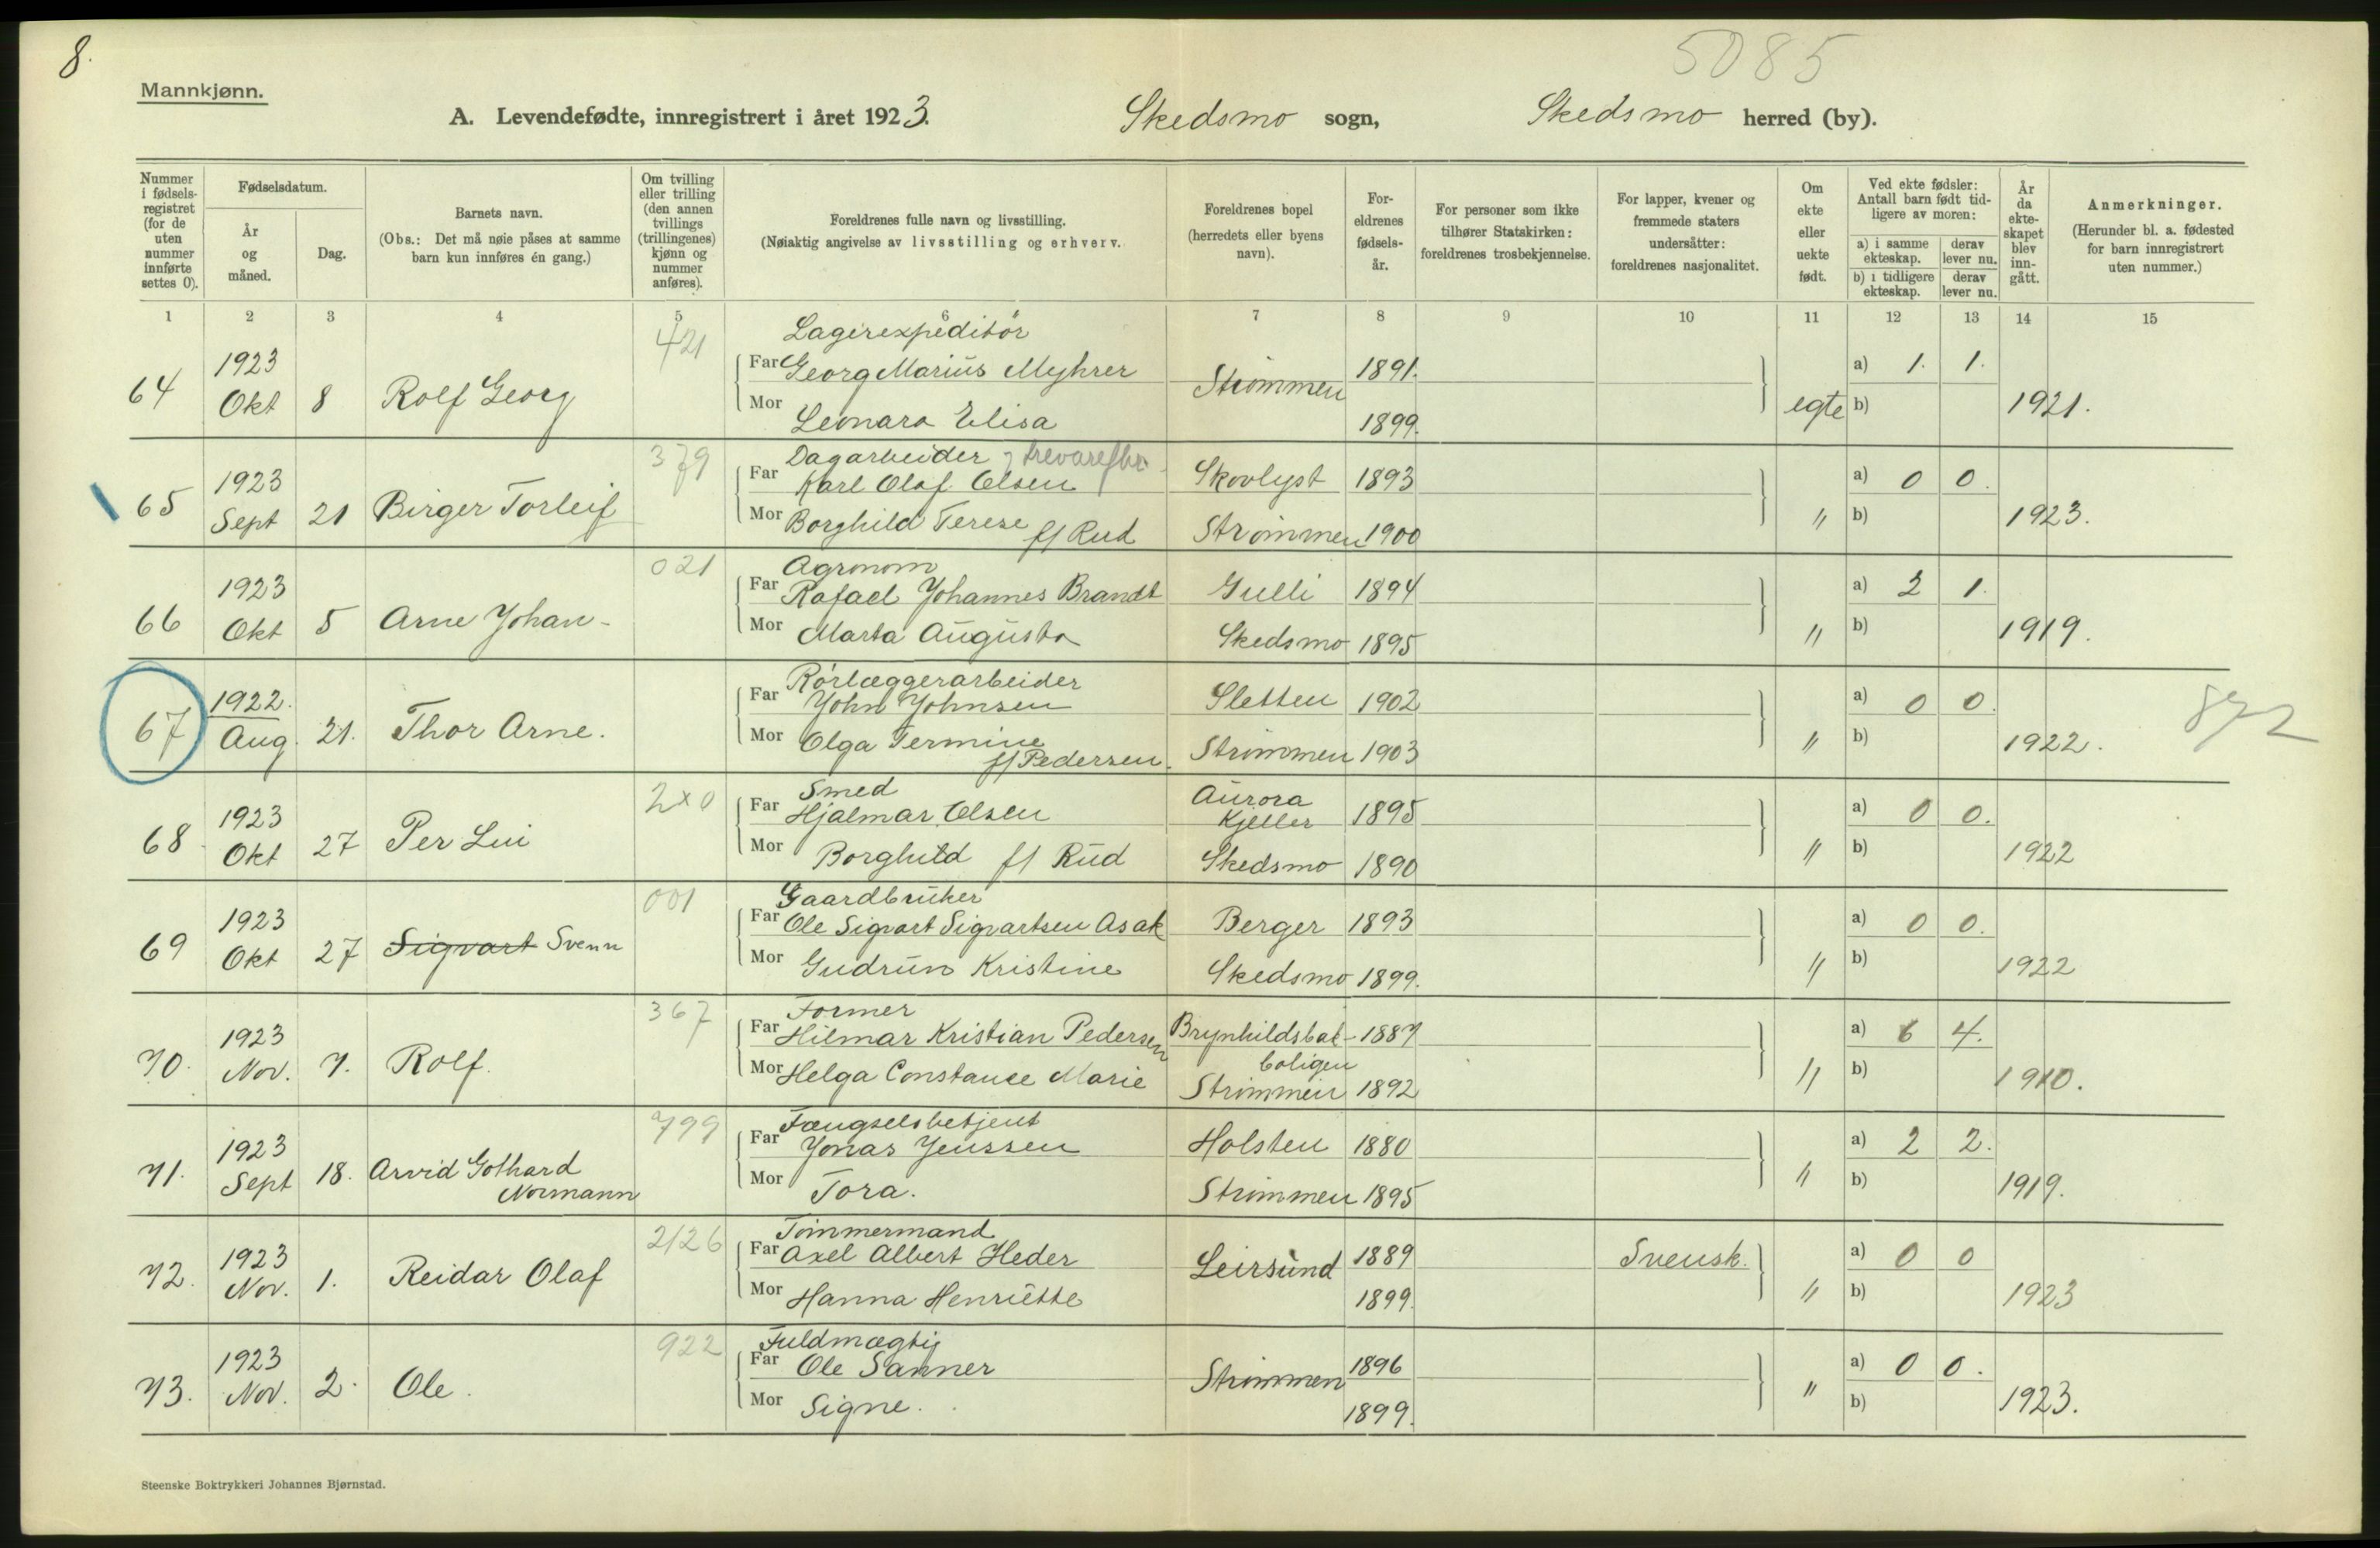 8.
5085
Mannkjønn.
A. Levendefødte, innregistrert i året 1923. Skedsmo sogn, Skedsmo herred (by).
Nummer i fødsels-registret (for de uten nummer innførte settes 0).
Fødselsdatum.
År og måned.
Dag.
Barnets navn.
(Obs.: Det må nøie påses at samme barn kun innføres én gang.)
Om tvilling eller trilling (den annen tvillings (trillingenes) kjønn og nummer anføres).
Foreldrenes fulle navn og livsstilling.
(Nøiaktig angivelse av livsstilling og erhverv.
Foreldrenes bopel (herredets eller byens navn).
For-eldrenes fødsels-år.
For personer som ikke tilhører Statskirken: foreldrenes trosbekjennelse.
For lapper, kvener og fremmede staters undersåtter: foreldrenes nasjonalitet.
Om ekte eller uekte født.
Ved ekte fødsler: Antall barn født tid-ligere av moren:
a) i samme ekteskap.
derav lever nu.
b) i tidligere ekteskap.
derav lever nu.
År da ekte-skapet blev inn-gått.
Anmerkninger.
(Herunder bl. a. fødested for barn innregistrert uten nummer.)
1 2 3 4 5 6 7 8 9 10 11 12 13 14 15
421 Lagerexpeditør
64 1923 Okt 8 Rolf Georg Far Georg Marius Myhrer Strømmen 1891. a) 1. 1.
Mor Leonara Elisa 1899. egte b) 1921.
379 Dagarbeider
65 1923 Sept 21 Birger Torleif Far Karl Olaf Olsen Skovlyst 1893 a) 0 0.
Mor Borghild Terese f/ Rud Strømmen 1900 " b) 1923.
021 Agronom
66 1923 Okt 5 Arne Johan - Far Rafael Johannes Brandt Gulli 1894 a) 2 1.
Mor Marta Augusta Skedsmo 1895 " b) 1919.
Rørlæggerarbeider
67 1922. Aug. 21. Thor Arne. Far John Johnsen Sletten 1902 a) 0 0. 872
Mor Olga Termine f/ Pedersen. Strømmen 1903 " b) 1922.
2x0 Smed
68 1923 Okt 27 Per Lui Far Hjalmar Olsen Aurora Kjeller 1895 a) 0 0.
Mor Borghild f/ Rud Skedsmo 1890 " b) 1922
001 Gaardbruker
69 1923 Okt 27 Sigvart Svenn Far Ole Sigvart Sigvartsen Asak Berger 1893 a) 0 0.
Mor Gudrun Kristine Skedsmo 1899. " b) 1922
367 Former
70. 1923 Nov. 7. Rolf. Far Hilmar Kristian Pedersen 1887 a) 6 4.
Mor Helga Constance Marie boligen Strømmen 1892 " b) 1910.
799 Fængselsbetjent
71. 1923 Sept 18. Arvid Gothard Normann Far Jonas Jenssen Holsten 1880 a) 2 2.
Mor Tora. Strømmen 1895 " b) 1919.
2126 Tømmermand
72. 1923 Nov. 1. Reidar Olaf Far Axel Albert Heder Leirsund 1889 Svensk. a) 0 0
Mor Hanna Henriette 1899. " b) 1923
922 Fuldmægtig
73. 1923 Nov. 2. Ole. Far Ole Sanner Strømmen 1896 a) 0 0.
Mor Signe. 1899. " b) 1923.
Steenske Boktrykkeri Johannes Bjørnstad.